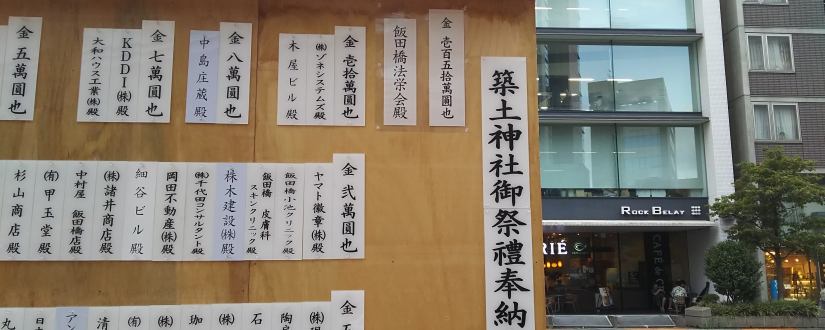 築土神社御祭禮奉納
金 壱百五拾萬圓也
飯田橋法栄会殿
金 壱拾萬圓也
㈱ゾネシステムズ殿
木屋ビル殿
金 八萬圓也
中島庄蔵殿
金 七萬圓也
KDDI㈱殿
大和ハウス工業㈱殿
金 五萬圓也
金 弐萬圓也
ヤマト徽章㈱殿
飯田橋小池クリニック殿
飯田橋 皮膚科
スキンクリニック殿
株木建設㈱殿
㈱千代田コンサルタント殿
岡田不動産㈱殿
細谷ビル殿
㈱諸井商店殿
中村屋 飯田橋店殿
㈲甲玉堂殿
杉山商店殿
金
陶
石
㈱
珈
㈱
㈲
清
アン
日
丸
ROCK BELAY
RIÉ
CAFE &